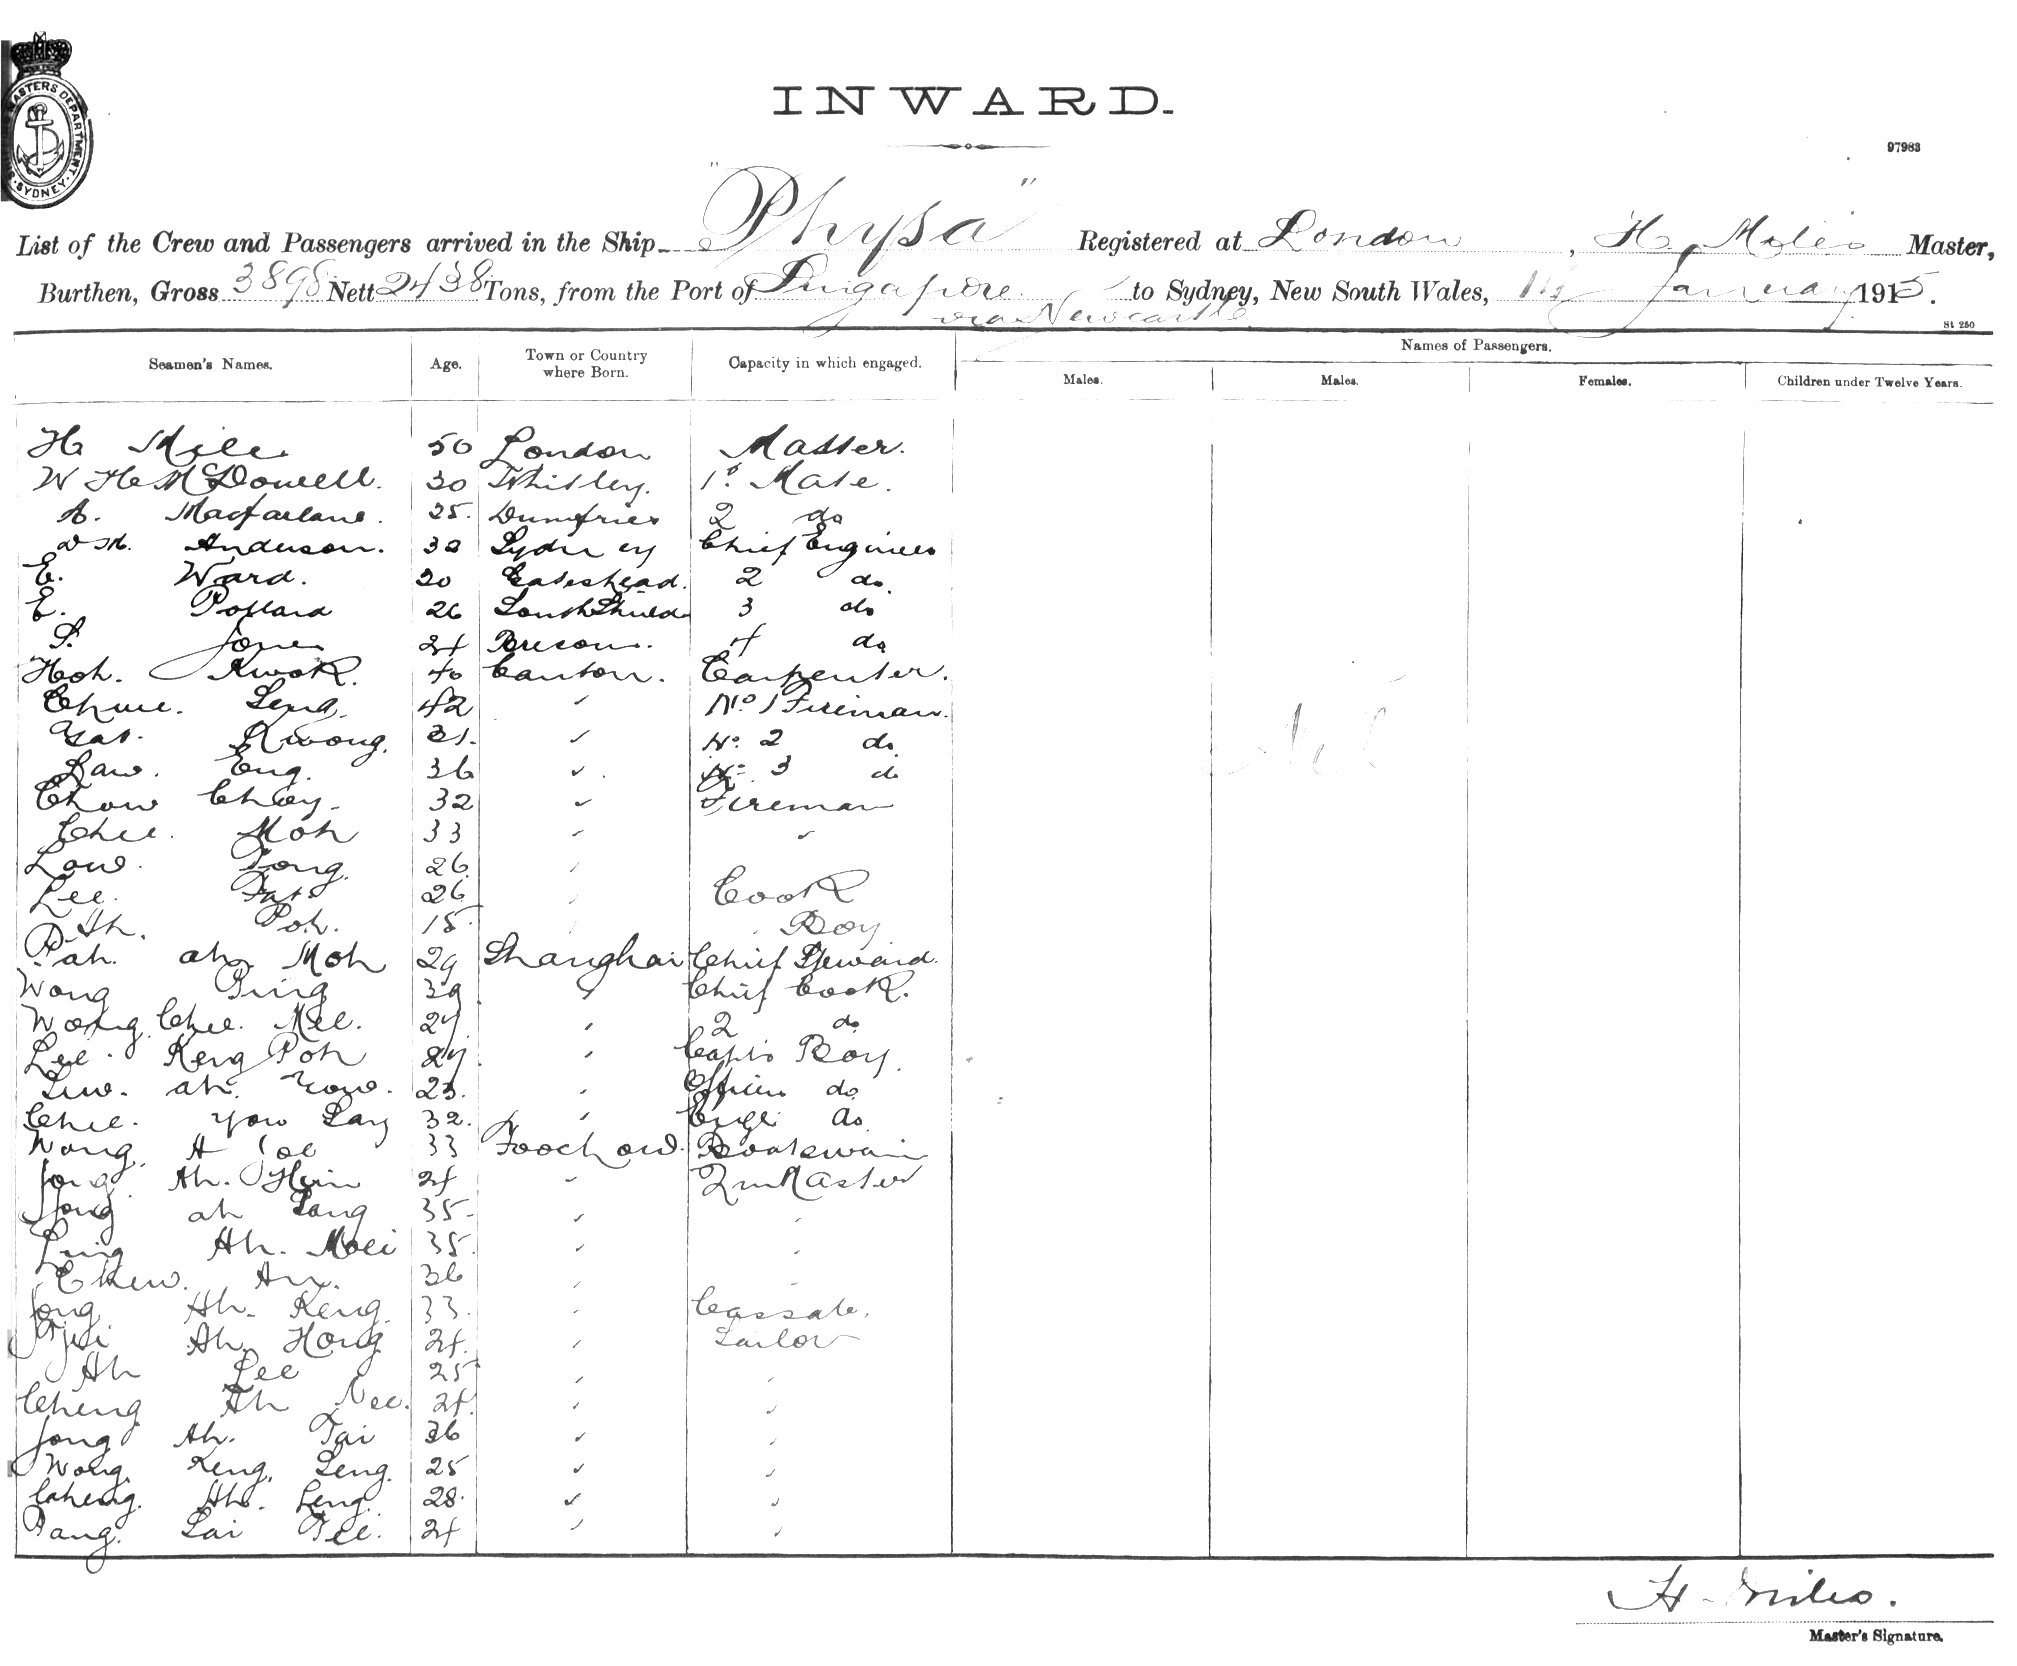 INWARD.
97983
List of the Crew and Passengers arrived in the Ship "Physa" Registered at London, H. Miles Master,
Burthen, Gross 3898 Nett 2438 Tons, from the Port of Singapore to Sydney, New South Wales, January 1915.
via Newcastle
St 250
Seamen's Names. Age. Town or Country where Born. Capacity in which engaged. Names of Passengers.
Males. Males. Females. Children under Twelve Years.
H Miles 50 London Master.
W H McDowell. 30 Whitley. 1st Mate.
A. Macfarlane. 25. Dumfries 2 do
Anderson. Sydney Chief Engineer
E. Ward. 30 Gateshead. 2 do.
E. Pollard 26 South Shields 3 do
S. Jones 24 4 do
Hoh. Kwok. 40 Canton. Carpenter.
Chue. Seng. 42 " No. 1 Fireman.
Yat. Kwong. 31. " No. 2 do.
Law. Eng. 36 " No. 3 do
Chow Choy. 32 " Fireman
Chee. Moh 33 " "
Low. Fong. 26 "
Lee. Fat. 26 " Cook
Ah. Poh. 15. Boy
Pah. ah. Moh 29 Shanghai Chief Steward.
Wong Ping 39 " Chief Cook.
Wong Chee. Mee. 27 " 2 do
Lee. Keng Poh 27 " Capt's Boy
Liw. ah. Yow. 23. " Officers do
Chee. You Lay 32. " do.
Wong. A 33 Foochow. Boatswain
Jong Ah. Hein 24 " Qr Master
Jong ah Lang 35. " "
Ling Ah. Moei 35. " "
Chew. An. 36 " "
Jong. Ah. Keng. 33. " Cassab.
Ah. Hong 24. " Sailor
Ah Lee 25 " "
Cheng Ah Nee. 24. " "
Jong Ah. Tai 36 " "
Wong. Keng. Seng. 25 " "
Ah. Leng. 28. " "
Pang. Lai Tee. 24 " "
Nil
H. Miles.
Master's Signature.
MASTERS DEPARTMENT
SYDNEY